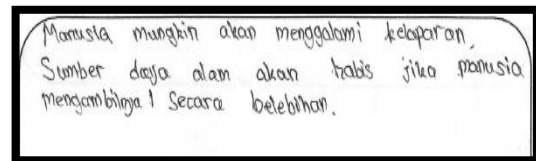 Manusia mungkin akan menggalami kelaparan,
Sumber daya alam akan habis jika manusia
mengambilnya secara belebihan.